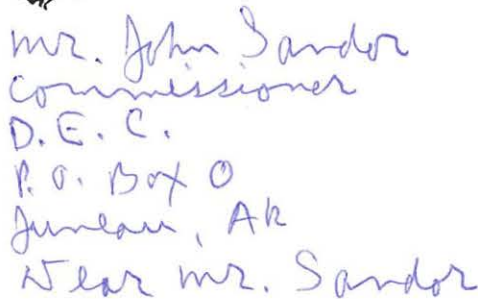 Mr. John Sandor
Commissioner
D.E.C.
P.O. Box O
Juneau, Ak
Dear Mr. Sandor